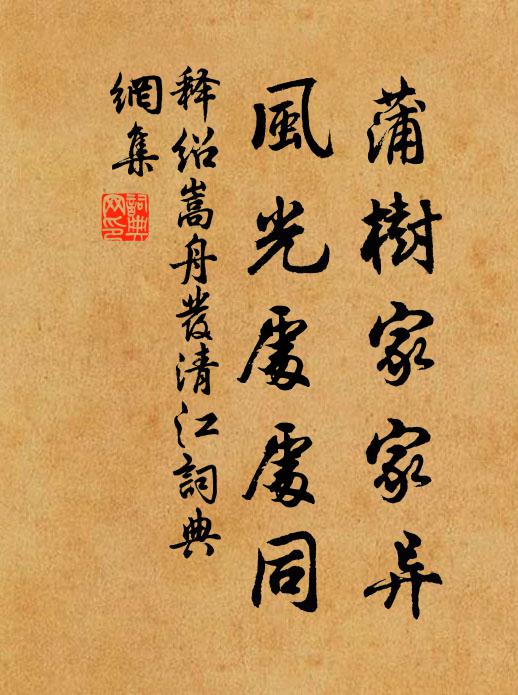 蒲樹家家异
風光處處同
释绍嵩舟發清江詞典
網集
詞典
网印